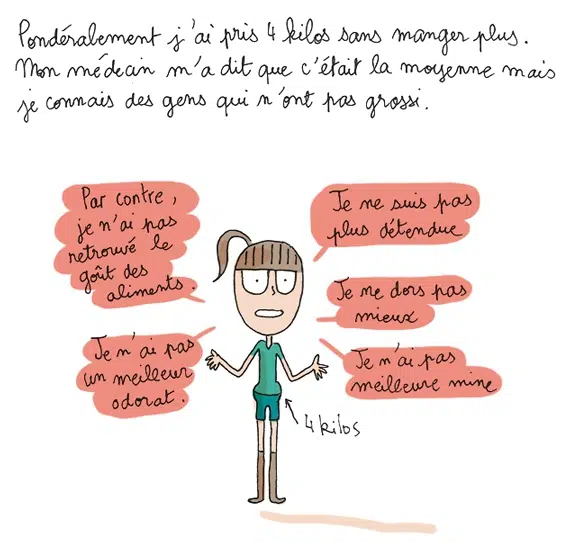 Pondéralement j'ai pris 4 kilos sans manger plus.
Mon médecin m'a dit que c'était la moyenne mais
je connais des gens qui n'ont pas grossi.
Par contre,
je n'ai pas
retrouvé le
goût des
aliments.
Je ne suis pas
plus détendue
Je ne dors pas
mieux
Je n'ai pas
un meilleur
odorat.
Je n'ai pas
meilleure mine
4 kilos